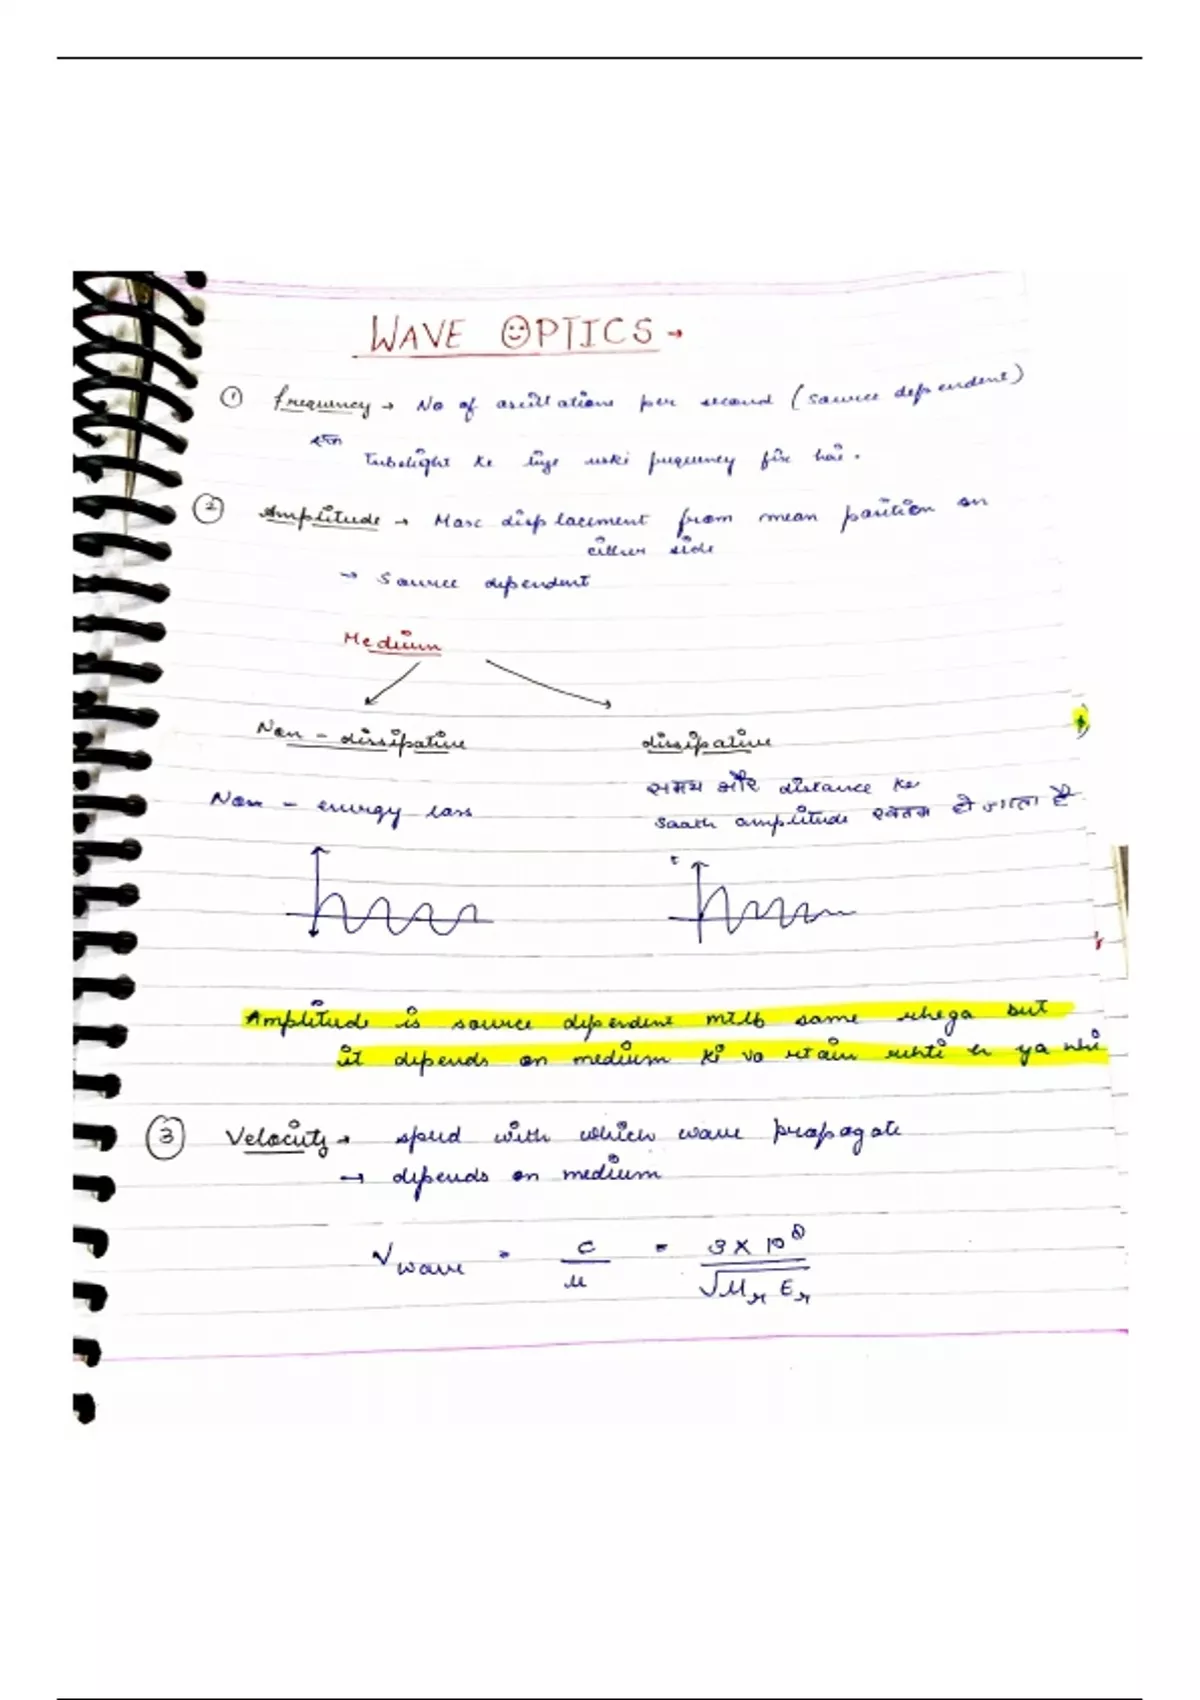 WAVE OPTICS →
① frequency → No of oscillations per second (source dependent)
एक
Tubelight ke liye uski frequency fix hai.
② Amplitude → Max displacement from mean position on
either side
→ Source dependent
Medium
Non - dissipative
dissipative
Non - energy loss
समय और distance ke
saath amplitude खतम हो जाता है
t
Amplitude is source dependent mtlb same rhega but
it depends on medium ki vo retain rehti h ya nhi
③ Velocity → speed with which wave propagate
→ depends on medium
V wave = c/μ = 3 × 10⁸/√μr εr